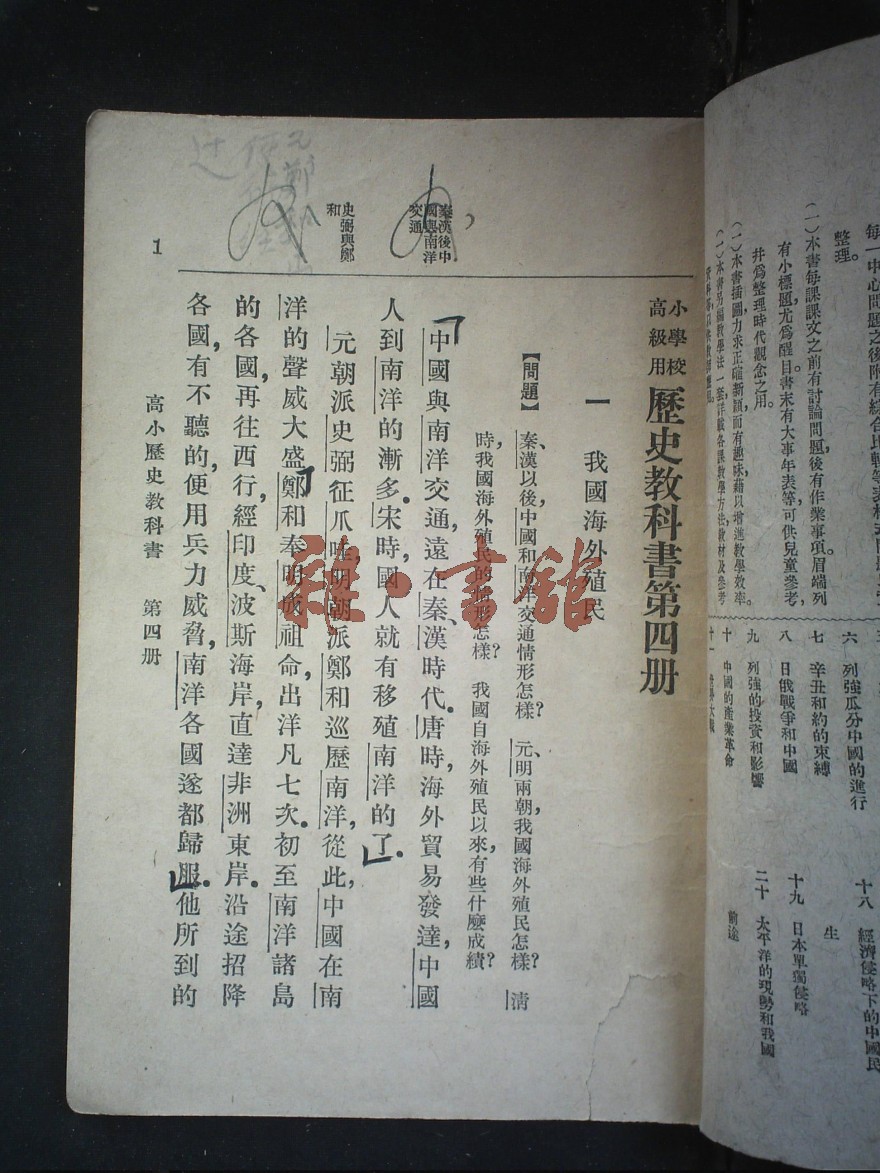 每一中心問題之後附有綜合比較等表
整理。
(一)本書每課課文之前有討論問題後有作業事項眉端列
有小標題尤爲醒目書末有大事年表等可供兒童參考
并爲整理時代觀念之用。
(一)本書插圖力求正確新穎而有趣味藉以增進教學效率。
(一)本書另編教學法一套詳載各課教學方法教材及參考
六 列強瓜分中國的進行
七 辛丑和約的束縛
八 日俄戰爭和中國
九 列強的投資和影響
十 中國的產業革命
十八 經濟侵略下的中國民
生
十九 日本單獨侵略
二十 太平洋的現勢和我國
前途
小學校
高級用
歷史教科書第四册
一 我國海外殖民
【問題】 秦、漢以後,中國和南洋交通情形怎樣? 元、明兩朝,我國海外殖民怎樣? 清
時,我國海外殖民的情形怎樣? 我國自海外殖民以來,有些什麼成績?
秦漢後中
國與南洋
交通
中國與南洋交通,遠在秦、漢時代。唐時,海外貿易發達,中國
人到南洋的漸多。宋時,國人就有移殖南洋的了。
史弼與鄭
和
元朝派史弼征爪哇,明朝派鄭和巡歷南洋,從此,中國在南
洋的聲威大盛。鄭和奉明成祖命,出洋凡七次。初至南洋諸島
的各國,再往西行,經印度、波斯海岸,直達非洲東岸。沿途招降
各國,有不聽的,便用兵力威脅,南洋各國遂都歸服。他所到的
高小歷史教科書 第四册
1
雜·書館